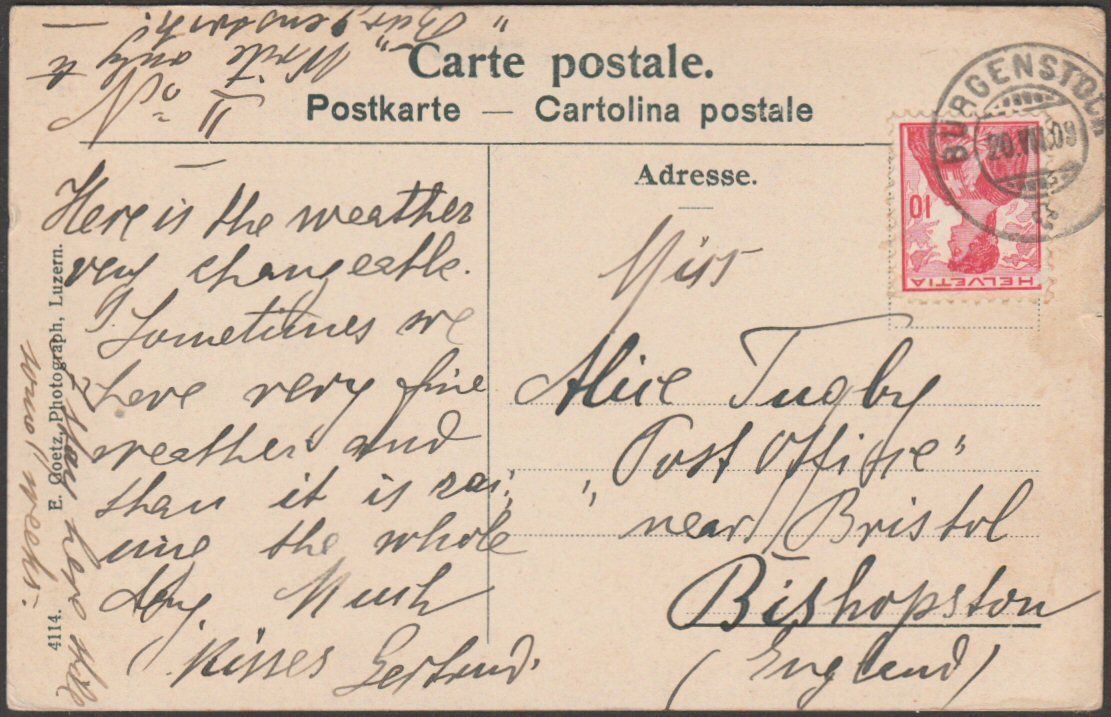 Carte postale.
Postkarte — Cartolina postale
Nº II
Write only to
"Bürgenstock"
Here is the weather
very changeable.
Sometimes we
have very fine
weather and
than it is rai,
ning the whole
day. Much
Kisses Gertrud.
I stay here still
two weeks.
4114. E. Goetz, Photograph, Luzern.
Adresse.
Miss
Alice Tugby
"Post Office"
near Bristol
Bishopston
(England)
BÜRGENSTOCK
20.VIII.09
HELVETIA
10